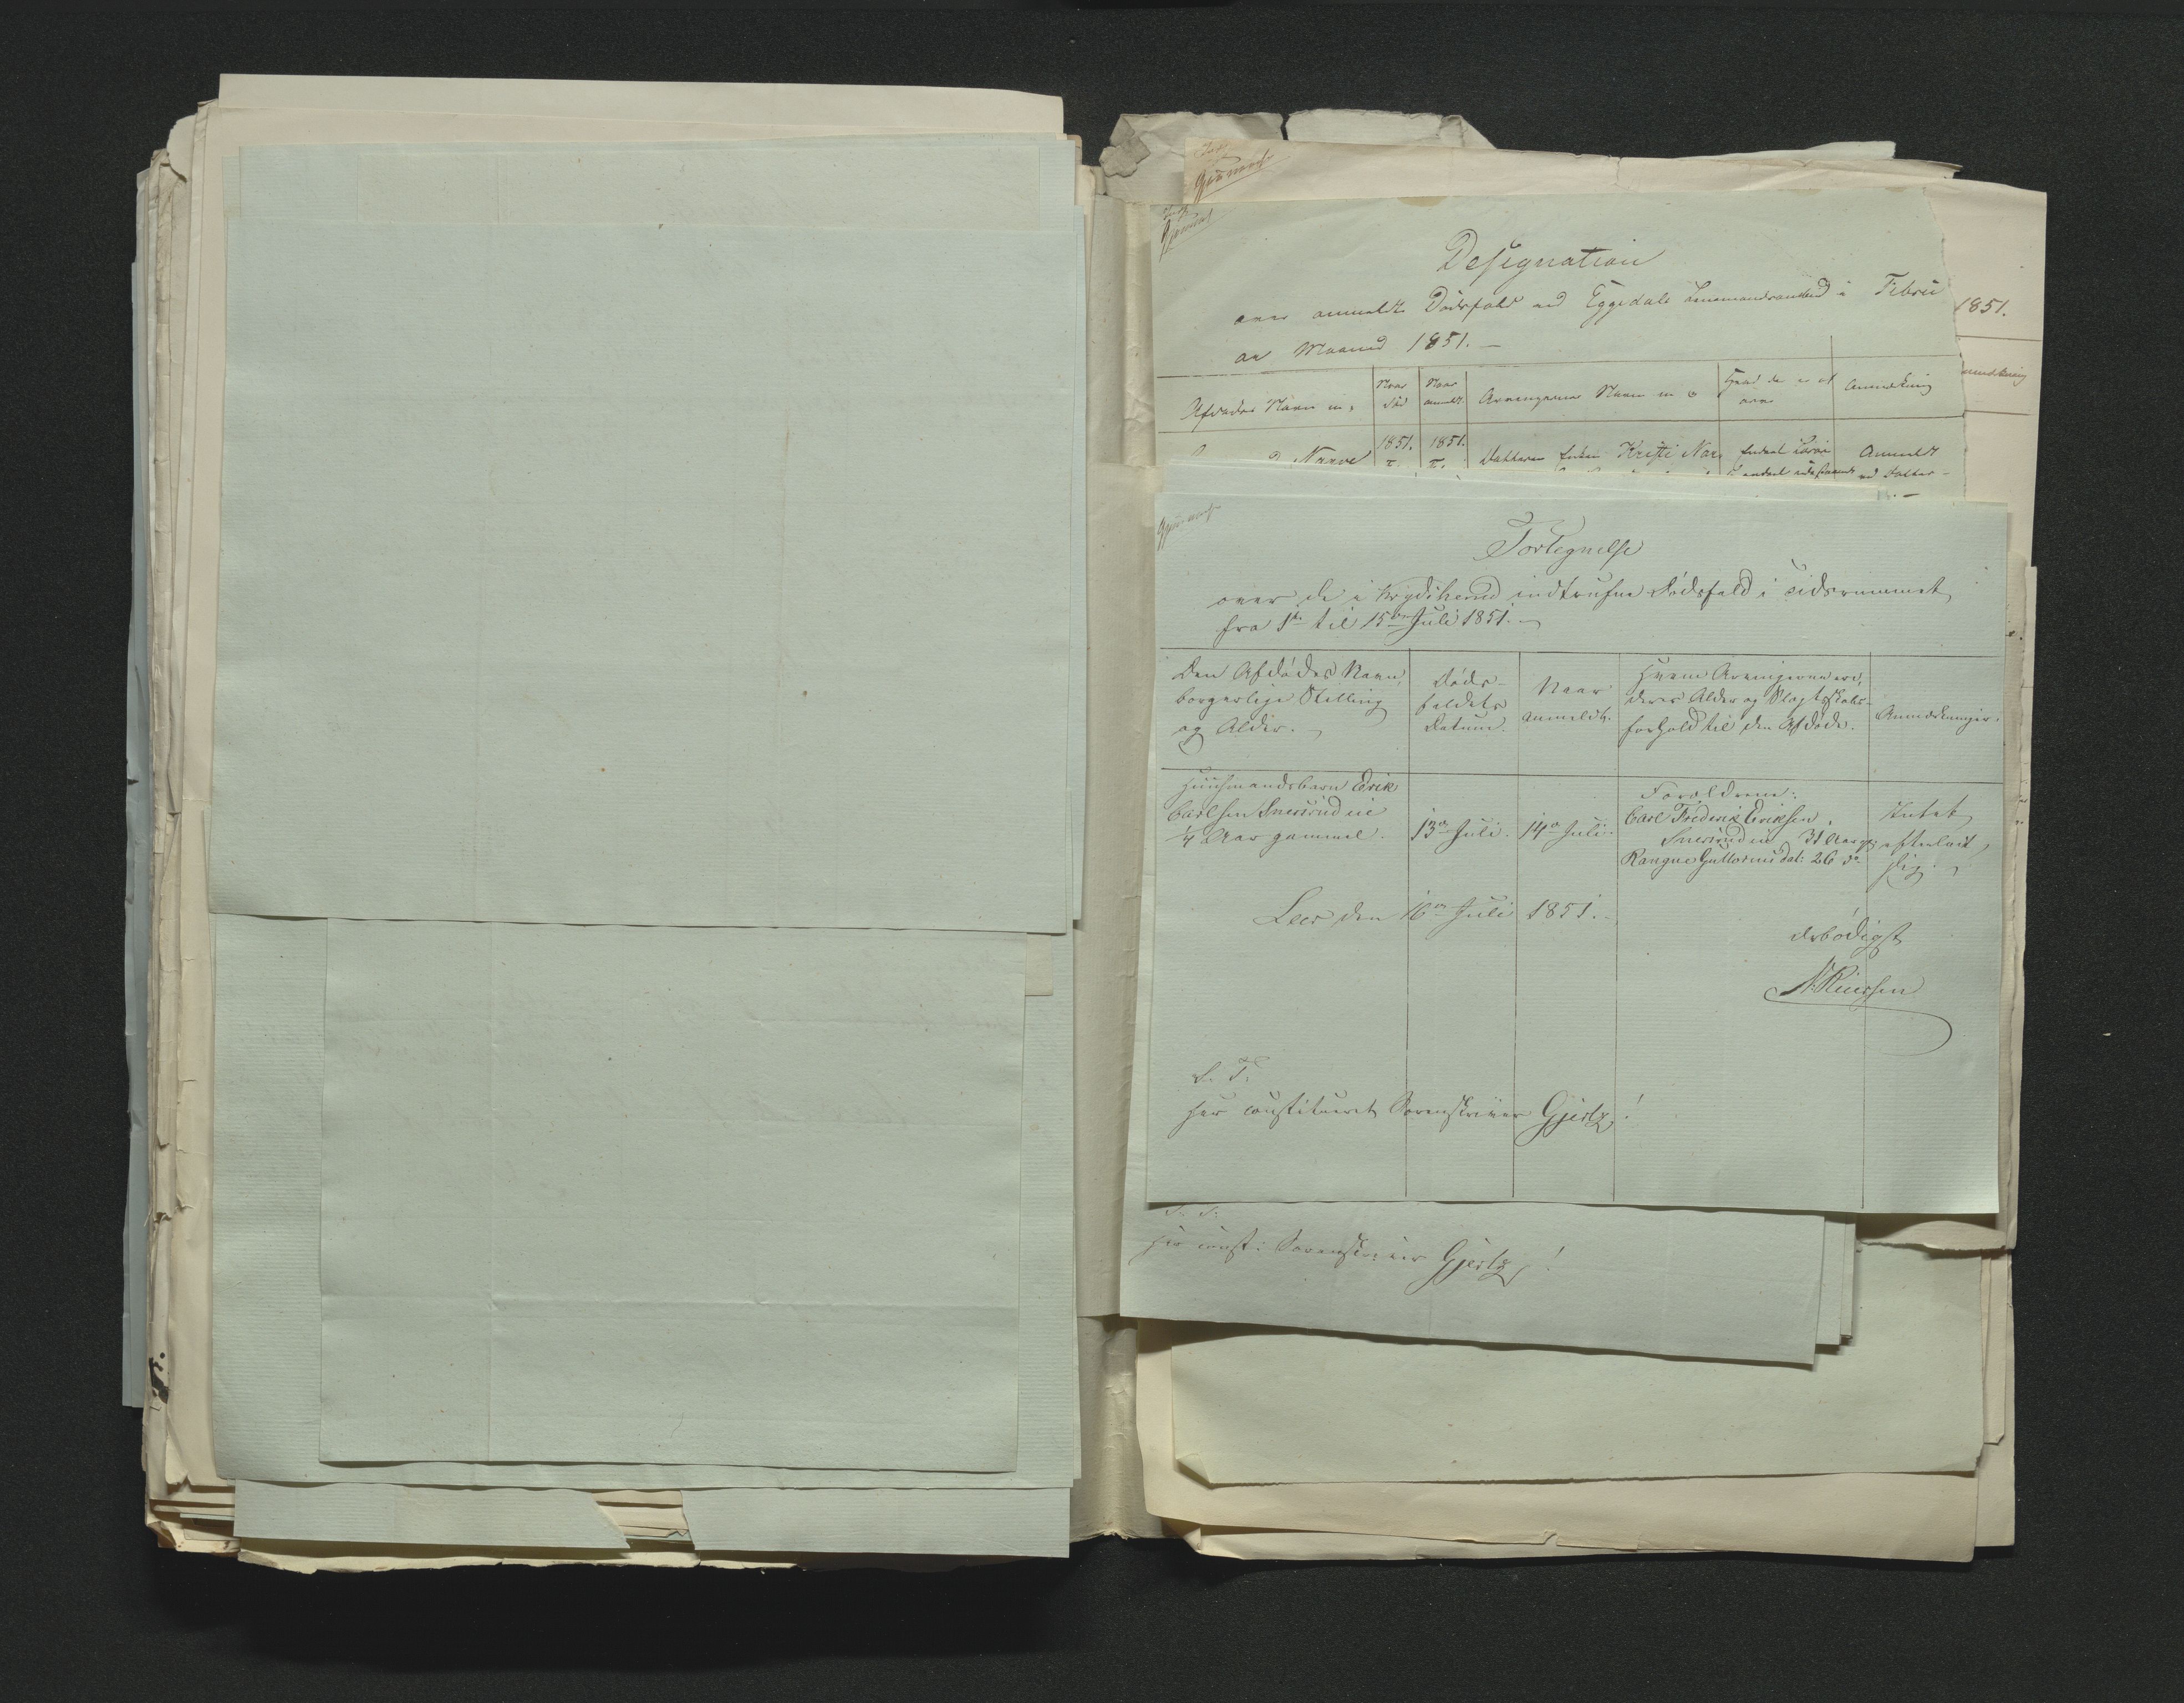 Designation
over anmeldte Dödsfald ved Eggedals Lensmandsombud i Februar
Maaned 1851.
1851.
Afdødes Navn
Naar
död
Naar
anmeldt.
Arvingernes Navn
Anmerkning
Naave
1851.
1851.
Datteren Enken Kristi
Anmeldt
Gjennemseet
Fortegnelse
over de i Krydsherred indtrufne Dödsfald i Tidsrummet
fra 1ste til 15de Juli 1851.
Den Afdödes Navn,
borgerlige Stilling
og Alder.
Döds-
faldets
Datum.
Naar
anmeldt.
Hvem Arvingerne ere,
deres Alder og Slægtskabs-
forhold til den Afdöde.
Anmærkninger.
Huusmandsbarn Erik
Carlsen Snersrudeie
¼ Aar gammel.
13de Juli.
14de Juli.
Forældrene:
Carl Frederik Eriksen
Snersrudeie 31 Aar g:
Rangne Guttormsdat: 26 do
Intet
efterladt
sig.
Leer den 16de Juli 1851.
Ærbödigst
S. T.
Herr constitueret Sorenskriver Gjertz!
S. T.
Herr const: Sorenskriver Gjertz!